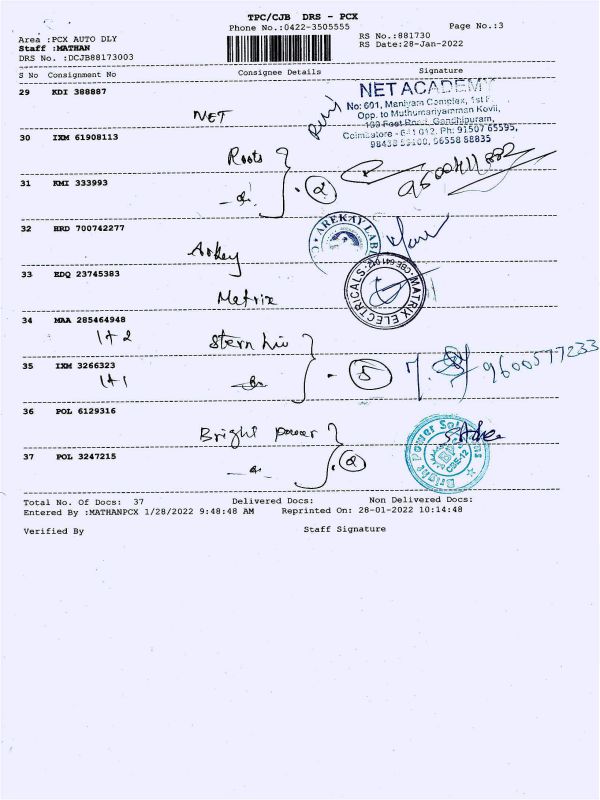 TPC/CJB DRS - PCX
Phone No.:0422-3505555
Page No.:3
Area :PCX AUTO DLY
RS No.:881730
Staff :MATHAN
RS Date:28-Jan-2022
DRS No. :DCJB88173003
S No Consignment No Consignee Details Signature
29 KDI 388887
NET
NET ACADEMY
No: 601, Maniyam Complex, 1st F
Opp. to Muthumariyamman Kovil,
100 Feet Road, Gandhipuram,
Coimbatore - 641 012. Ph: 91507 65595,
98438 55100, 96558 88835
30 IXM 61908113
Roots
31 KMI 333993
- do - 2
32 HRD 700742277
Arkey
AREKAY LABS
33 EDQ 23745383
Metrix
MATRIX ELECTRICALS CBE-641 012
34 MAA 285464948
1+2
35 IXM 3266323
1+1
- 5
9600577233
36 POL 6129316
Bright power
Bright Power Solutions
CBE-12
37 POL 3247215
- do - 2
Total No. Of Docs: 37 Delivered Docs: Non Delivered Docs:
Entered By :MATHANPCX 1/28/2022 9:48:48 AM Reprinted On: 28-01-2022 10:14:48
Verified By Staff Signature